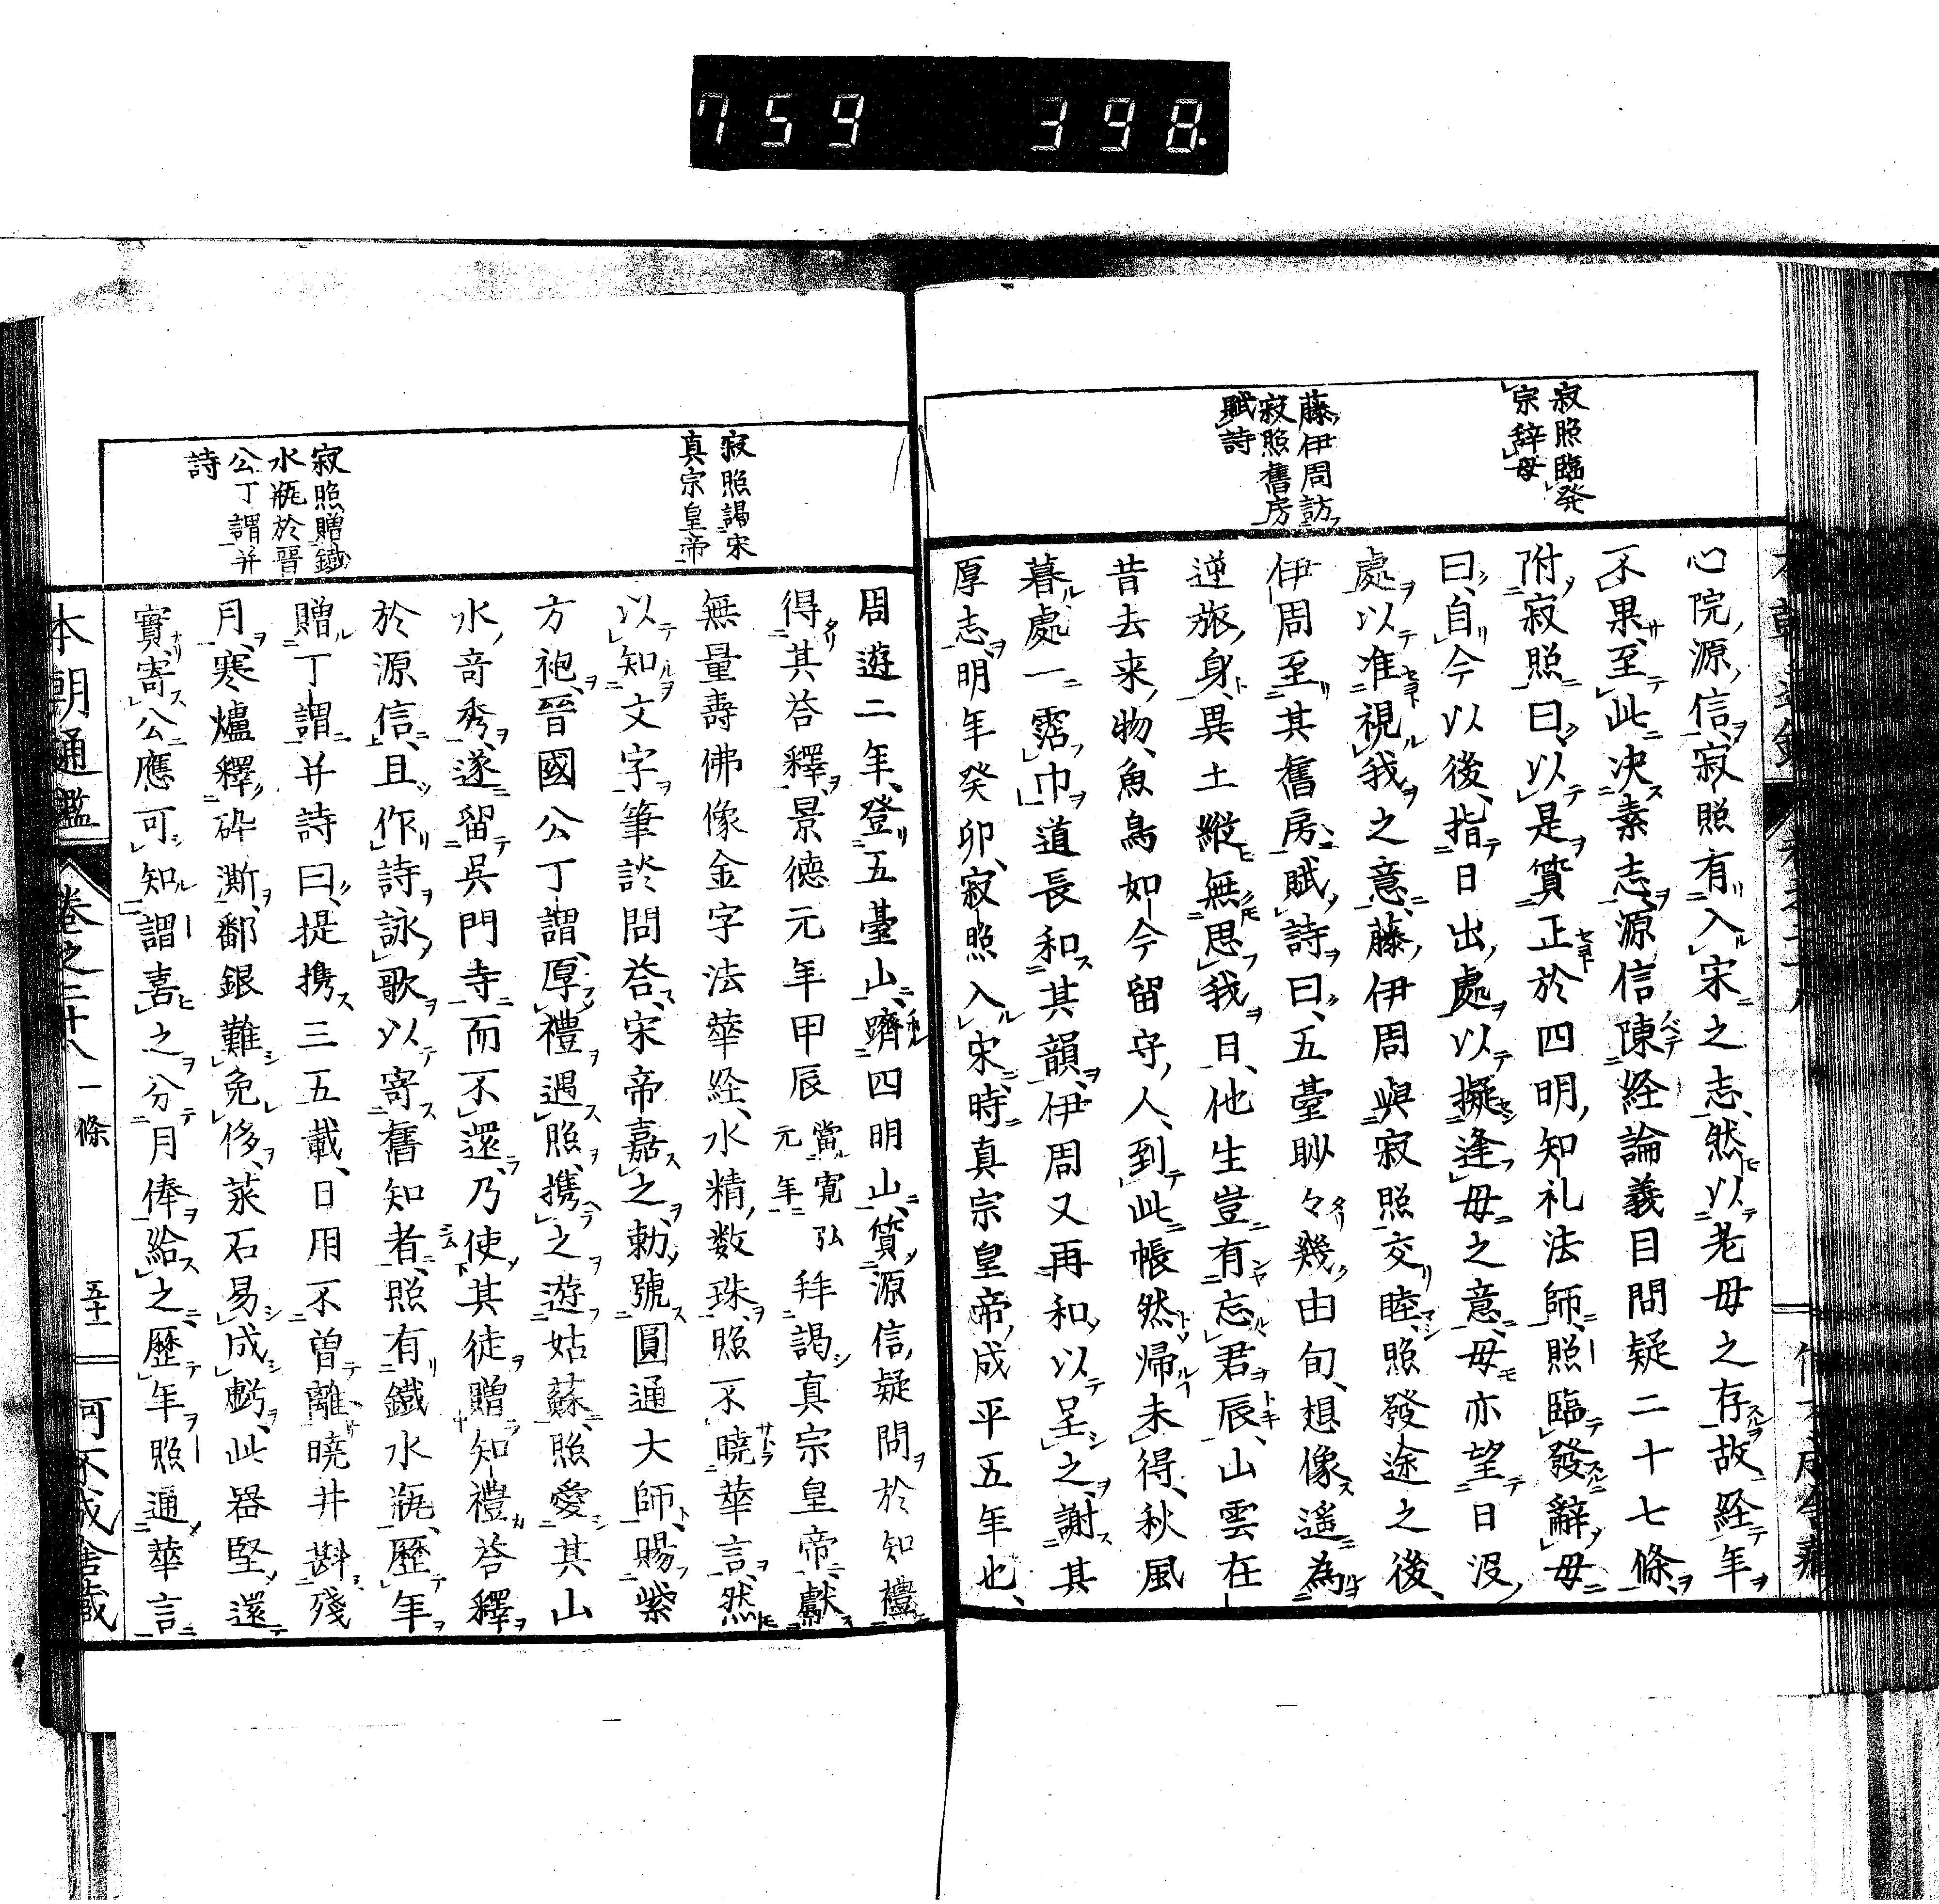 759 398
寂照臨發
宗辭母
藤伊周訪
寂照舊房
賦詩
心院源信寂照有入宋之志然以老母之存故経年
不果至此決素志源信陳経論義目問疑二十七條
附寂照曰以是質正於四明知礼法師照臨發辭母
曰自今以後指日出處以擬逢母之意母亦望日沒
處以准視我之意藤伊周與寂照交睦照發途之後
伊周至其舊房賦詩曰五臺眇々幾由旬想像遥為
逆旅身異土縱無思我日他生豈有忘君辰山雲在
昔去来物魚鳥如今留守人到此悵然帰未得秋風
暮處一霑巾道長和其韻伊周又再和以呈之謝其
厚志明年癸卯寂照入宋時真宗皇帝成平五年也
寂照謁宋
真宗皇帝
寂照贈鐵
水瓶於晉
公丁謂并
詩
周遊二年登五臺山躋四明山質源信疑問於知禮
得其答釋景德元年甲辰當寬弘元年拜謁真宗皇帝獻
無量壽佛像金字法華経水精数珠照不曉華言然
以知文字筆談問答宋帝嘉之勅號圓通大師賜紫
方袍晉國公丁謂厚禮遇照攜之遊姑蘇照愛其山
水竒秀遂留吳門寺而不還乃使其徒贈知禮答釋
於源信且作詩詠歌以寄舊知者照有鐵水瓶歷年
贈丁謂并詩曰提携三五載日用不曽離曉井斟殘
月寒爐釋砕澌鄱銀難免侈萊石易成虧此器堅還
實寄公應可知謂喜之分月俸給之歷年照通華言
本朝通鑑 卷之二十八 一條 五十一